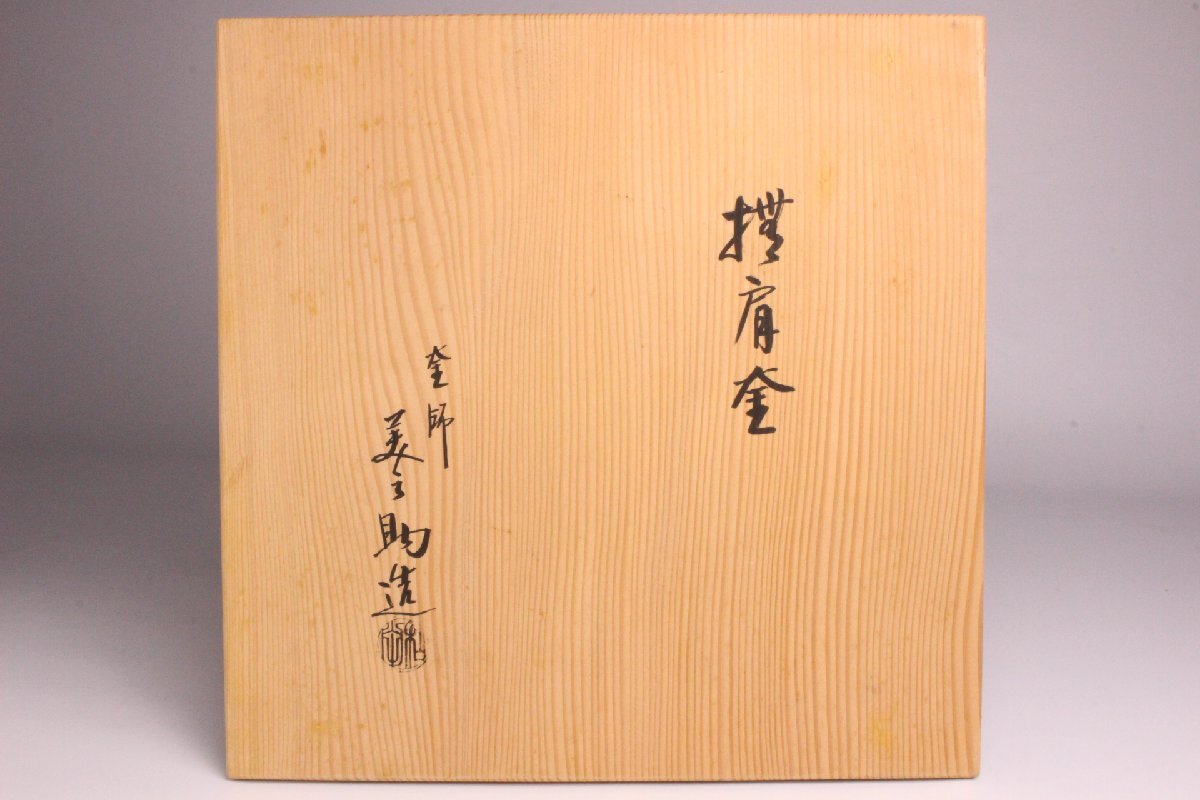 撫肩釜
釜師
美之助造